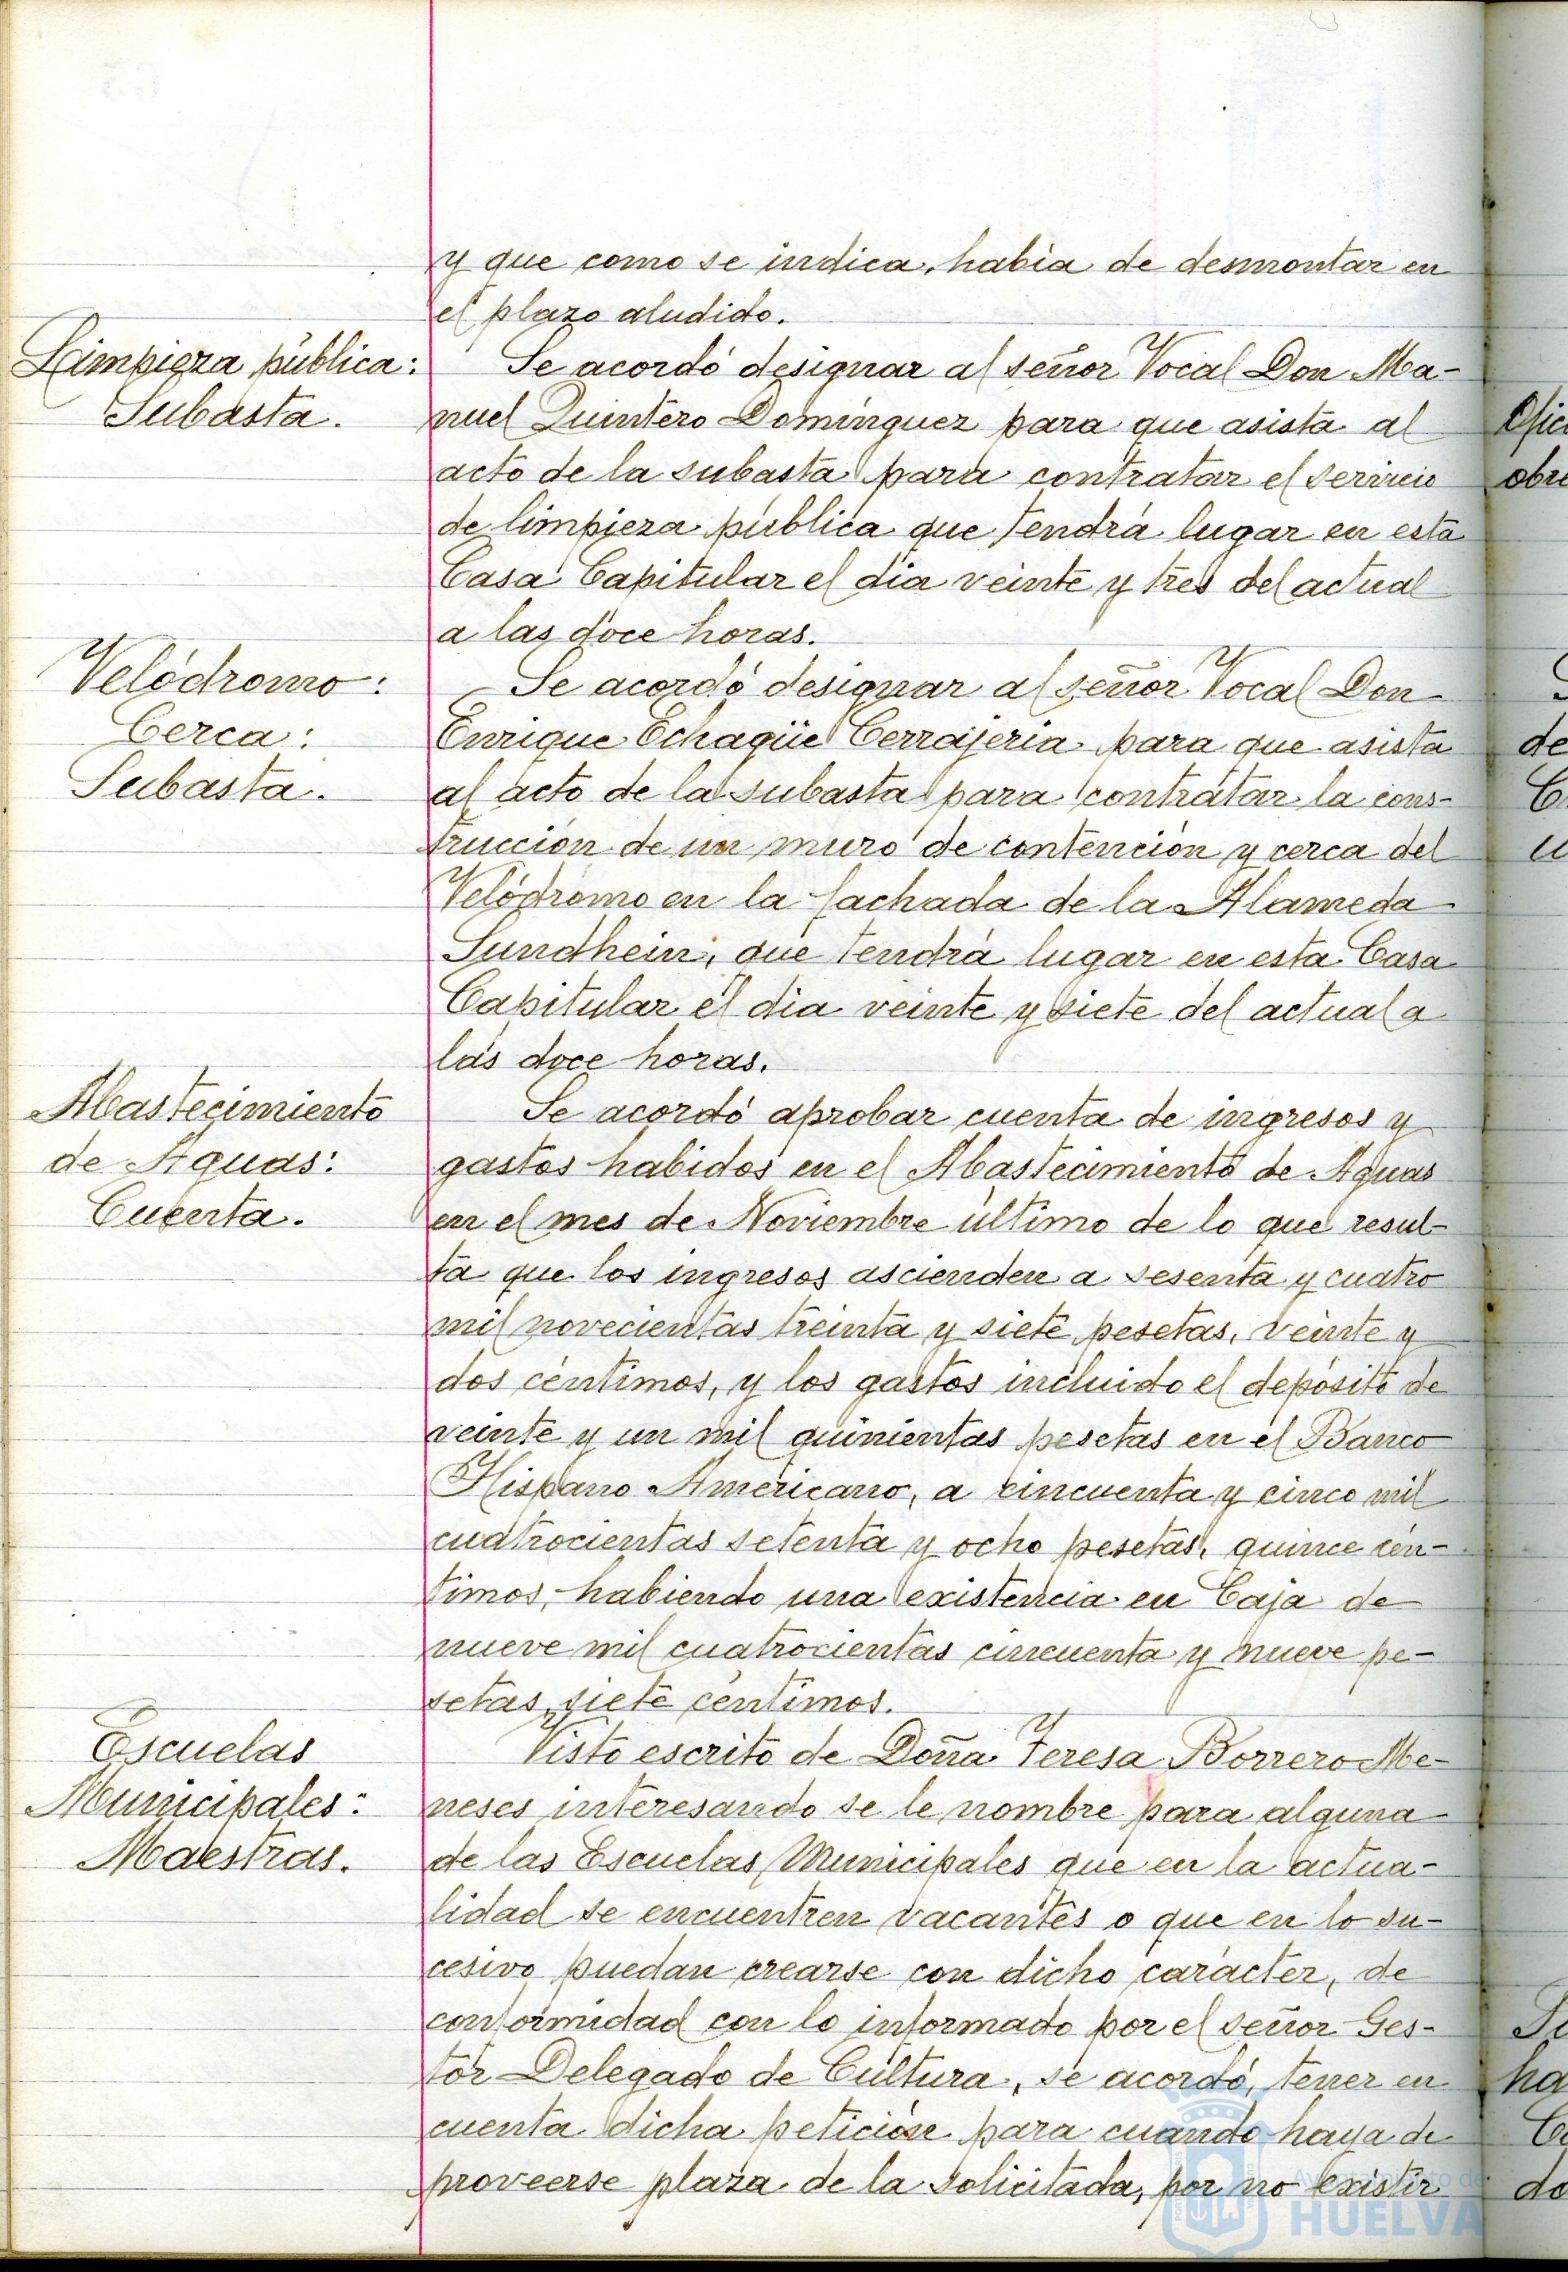 y que como se indica, había de desmontar en
el plazo aludido.
Limpieza pública:
Subasta.
Se acordó designar al señor Vocal Don Ma-
nuel Quintero Domínguez para que asista al
acto de la subasta para contratar el servicio
de limpieza pública que tendrá lugar en esta
Casa Capitular el día veinte y tres del actual
a las doce horas.
Velódromo:
Cerca:
Subasta.
Se acordó designar al señor Vocal Don
Enrique Echagüe Cerrajería para que asista
al acto de la subasta para contratar la cons-
trucción de un muro de contención y cerca del
Velódromo en la fachada de la Alameda
Sundhein, que tendrá lugar en esta Casa
Capitular el día veinte y siete del actual a
las doce horas.
Abastecimiento
de Aguas:
Cuenta.
Se acordó aprobar cuenta de ingresos y
gastos habidos en el Abastecimiento de Aguas
en el mes de Noviembre último de lo que resul-
ta que los ingresos ascienden a sesenta y cuatro
mil novecientas treinta y siete pesetas, veinte y
dos céntimos, y los gastos incluido el depósito de
veinte y un mil quinientas pesetas en el Banco
Hispano Americano, a cincuenta y cinco mil
cuatrocientas setenta y ocho pesetas, quince cén-
timos, habiendo una existencia en Caja de
nueve mil cuatrocientas cincuenta y nueve pe-
setas, siete céntimos.
Escuelas
Municipales:
Maestras.
Visto escrito de Doña Teresa Borrero Me-
neses interesando se le nombre para alguna
de las Escuelas Municipales que en la actua-
lidad se encuentren vacantes o que en lo su-
cesivo puedan crearse con dicho carácter, de
conformidad con lo informado por el señor Ges-
tor Delegado de Cultura, se acordó, tener en
cuenta dicha petición para cuando haya de
proveerse plaza de la solicitada, por no existir
Ayuntamiento de
HUELVA